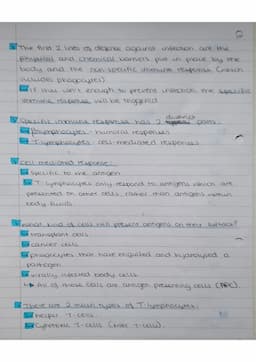 The first 2 lines of defense against infection are the
physical and chemical barriers put in place by the
body and the non specific immune response (which
includes phagocytes)
If this isn't enough to prevent infection, the specific
immune response will be triggered
Specific immune response has 2 distinct parts:
B lymphocytes: humoral responses
T lymphocytes: cell mediated responses
Cell mediated response:
specific to one antigen
T lymphocytes only respond to antigens which are
presented on other cells, rather than antigens within
body fluids
What kind of cells will present antigens on their surface?
transplant cells
cancer cells
phagocytes that have engulfed and hydrolysed a
pathogen
virally infected body cells
↳ All of these cells are antigen presenting cells (APC).
There are 2 main types of T-lymphocytes:
helper T-cells
Cytotoxic T-cells (killer T-cells).